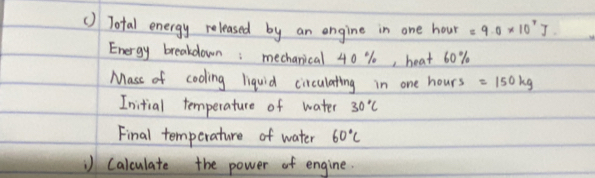 c) Total energy released by an engine in one hour = 9.0 × 10⁷ J.
Energy breakdown : mechanical 40 %, heat 60%
Mass of cooling liquid circulating in one hours = 150 kg
Initial temperature of water 30°C
Final temperature of water 60°C
i) Calculate the power of engine.